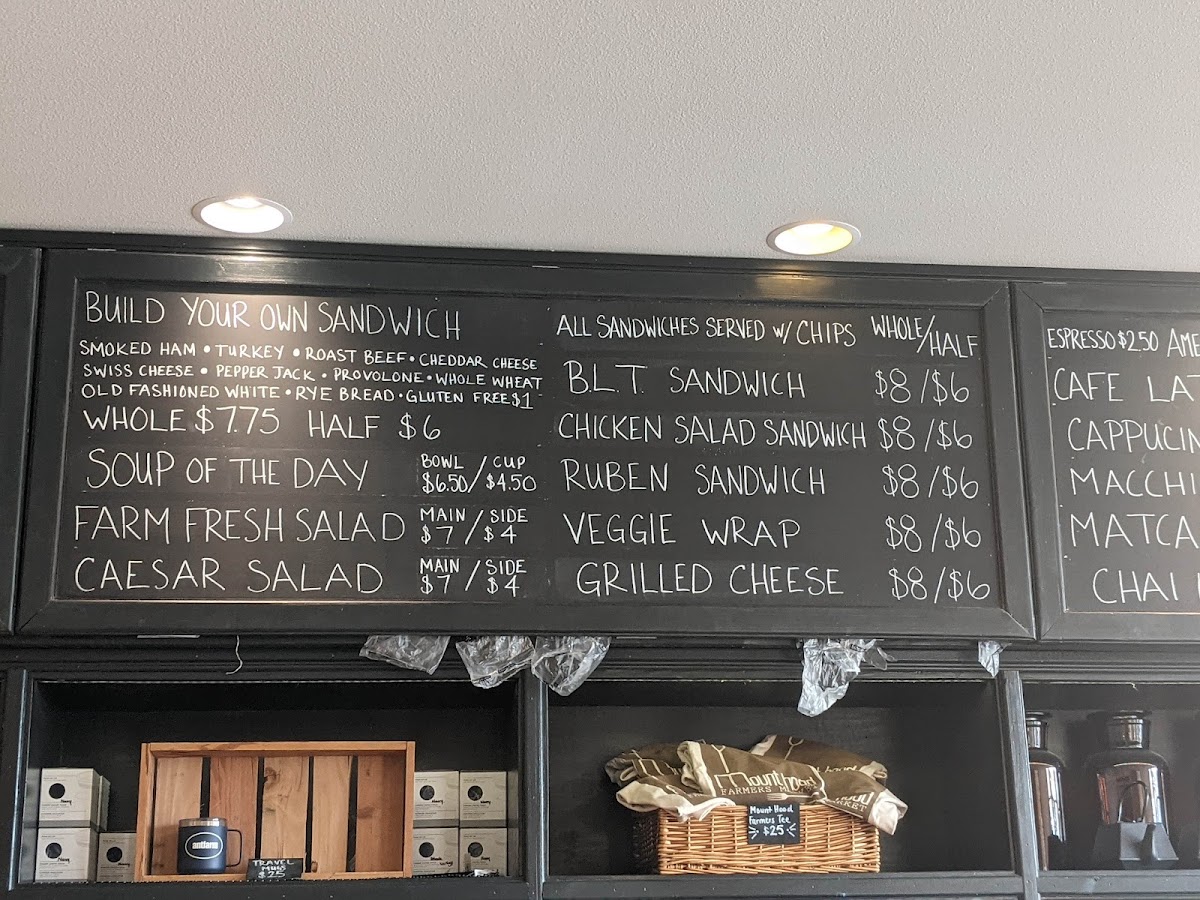 BUILD YOUR OWN SANDWICH
SMOKED HAM • TURKEY • ROAST BEEF • CHEDDAR CHEESE
SWISS CHEESE • PEPPER JACK • PROVOLONE • WHOLE WHEAT
OLD FASHIONED WHITE • RYE BREAD • GLUTEN FREE $1
WHOLE $7.75 HALF $6
SOUP OF THE DAY BOWL / CUP
$6.50 / $4.50
FARM FRESH SALAD MAIN / SIDE
$7 / $4
CAESAR SALAD MAIN / SIDE
$7 / $4
ALL SANDWICHES SERVED W/ CHIPS WHOLE/HALF
B.L.T. SANDWICH $8/$6
CHICKEN SALAD SANDWICH $8/$6
RUBEN SANDWICH $8/$6
VEGGIE WRAP $8/$6
GRILLED CHEESE $8/$6
ESPRESSO $2.50 AME
CAFE LAT
CAPPUCIN
MACCHI
MATCA
CHAI
antfarm
TRAVEL
MUGS
$25
Mount Hood
FARMERS M
hood
RKET
Mount Hood
Farmers Tee
$25